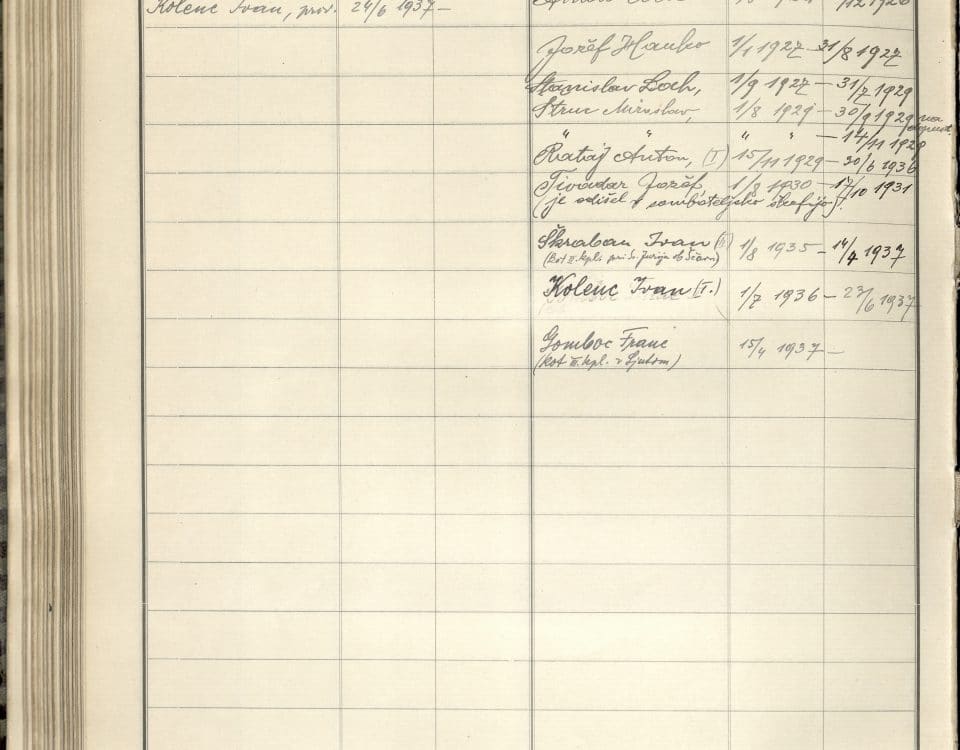 Kolenc Ivan, prov. 24/6 1937 –
Jožef Hauko 1/1 1927 – 31/8 1927
Stanislav Loch, 1/9 1927 – 31/7 1929
Struc Miroslav, 1/8 1929 – 30/9 1929 na dopust.
" " " " – 14/11 1929
Rataj Anton, (I) 15/11 1929 – 30/6 1936
Tivadar Jožef, 1/8 1930 – 17/10 1931
(je odišel v sombateljsko škofijo).
Škraban Ivan (II) 1/8 1935 – 14/4 1937
(Kot II. kpl. pri Sv. Juriju ob Ščavn)
Kolenc Ivan (I.) 1/7 1936 – 23/6 1937
Gomboc Franc 15/4 1937 –
(kot II. kpl. v Ljutom)